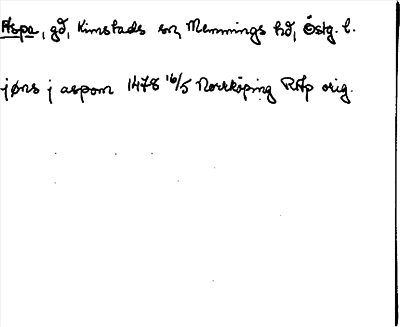 Aspa, gd, Kimstads sn, Memmings hd, Östg. l.
jøns j aspom 1478 16/5 Norrköping RAp orig.